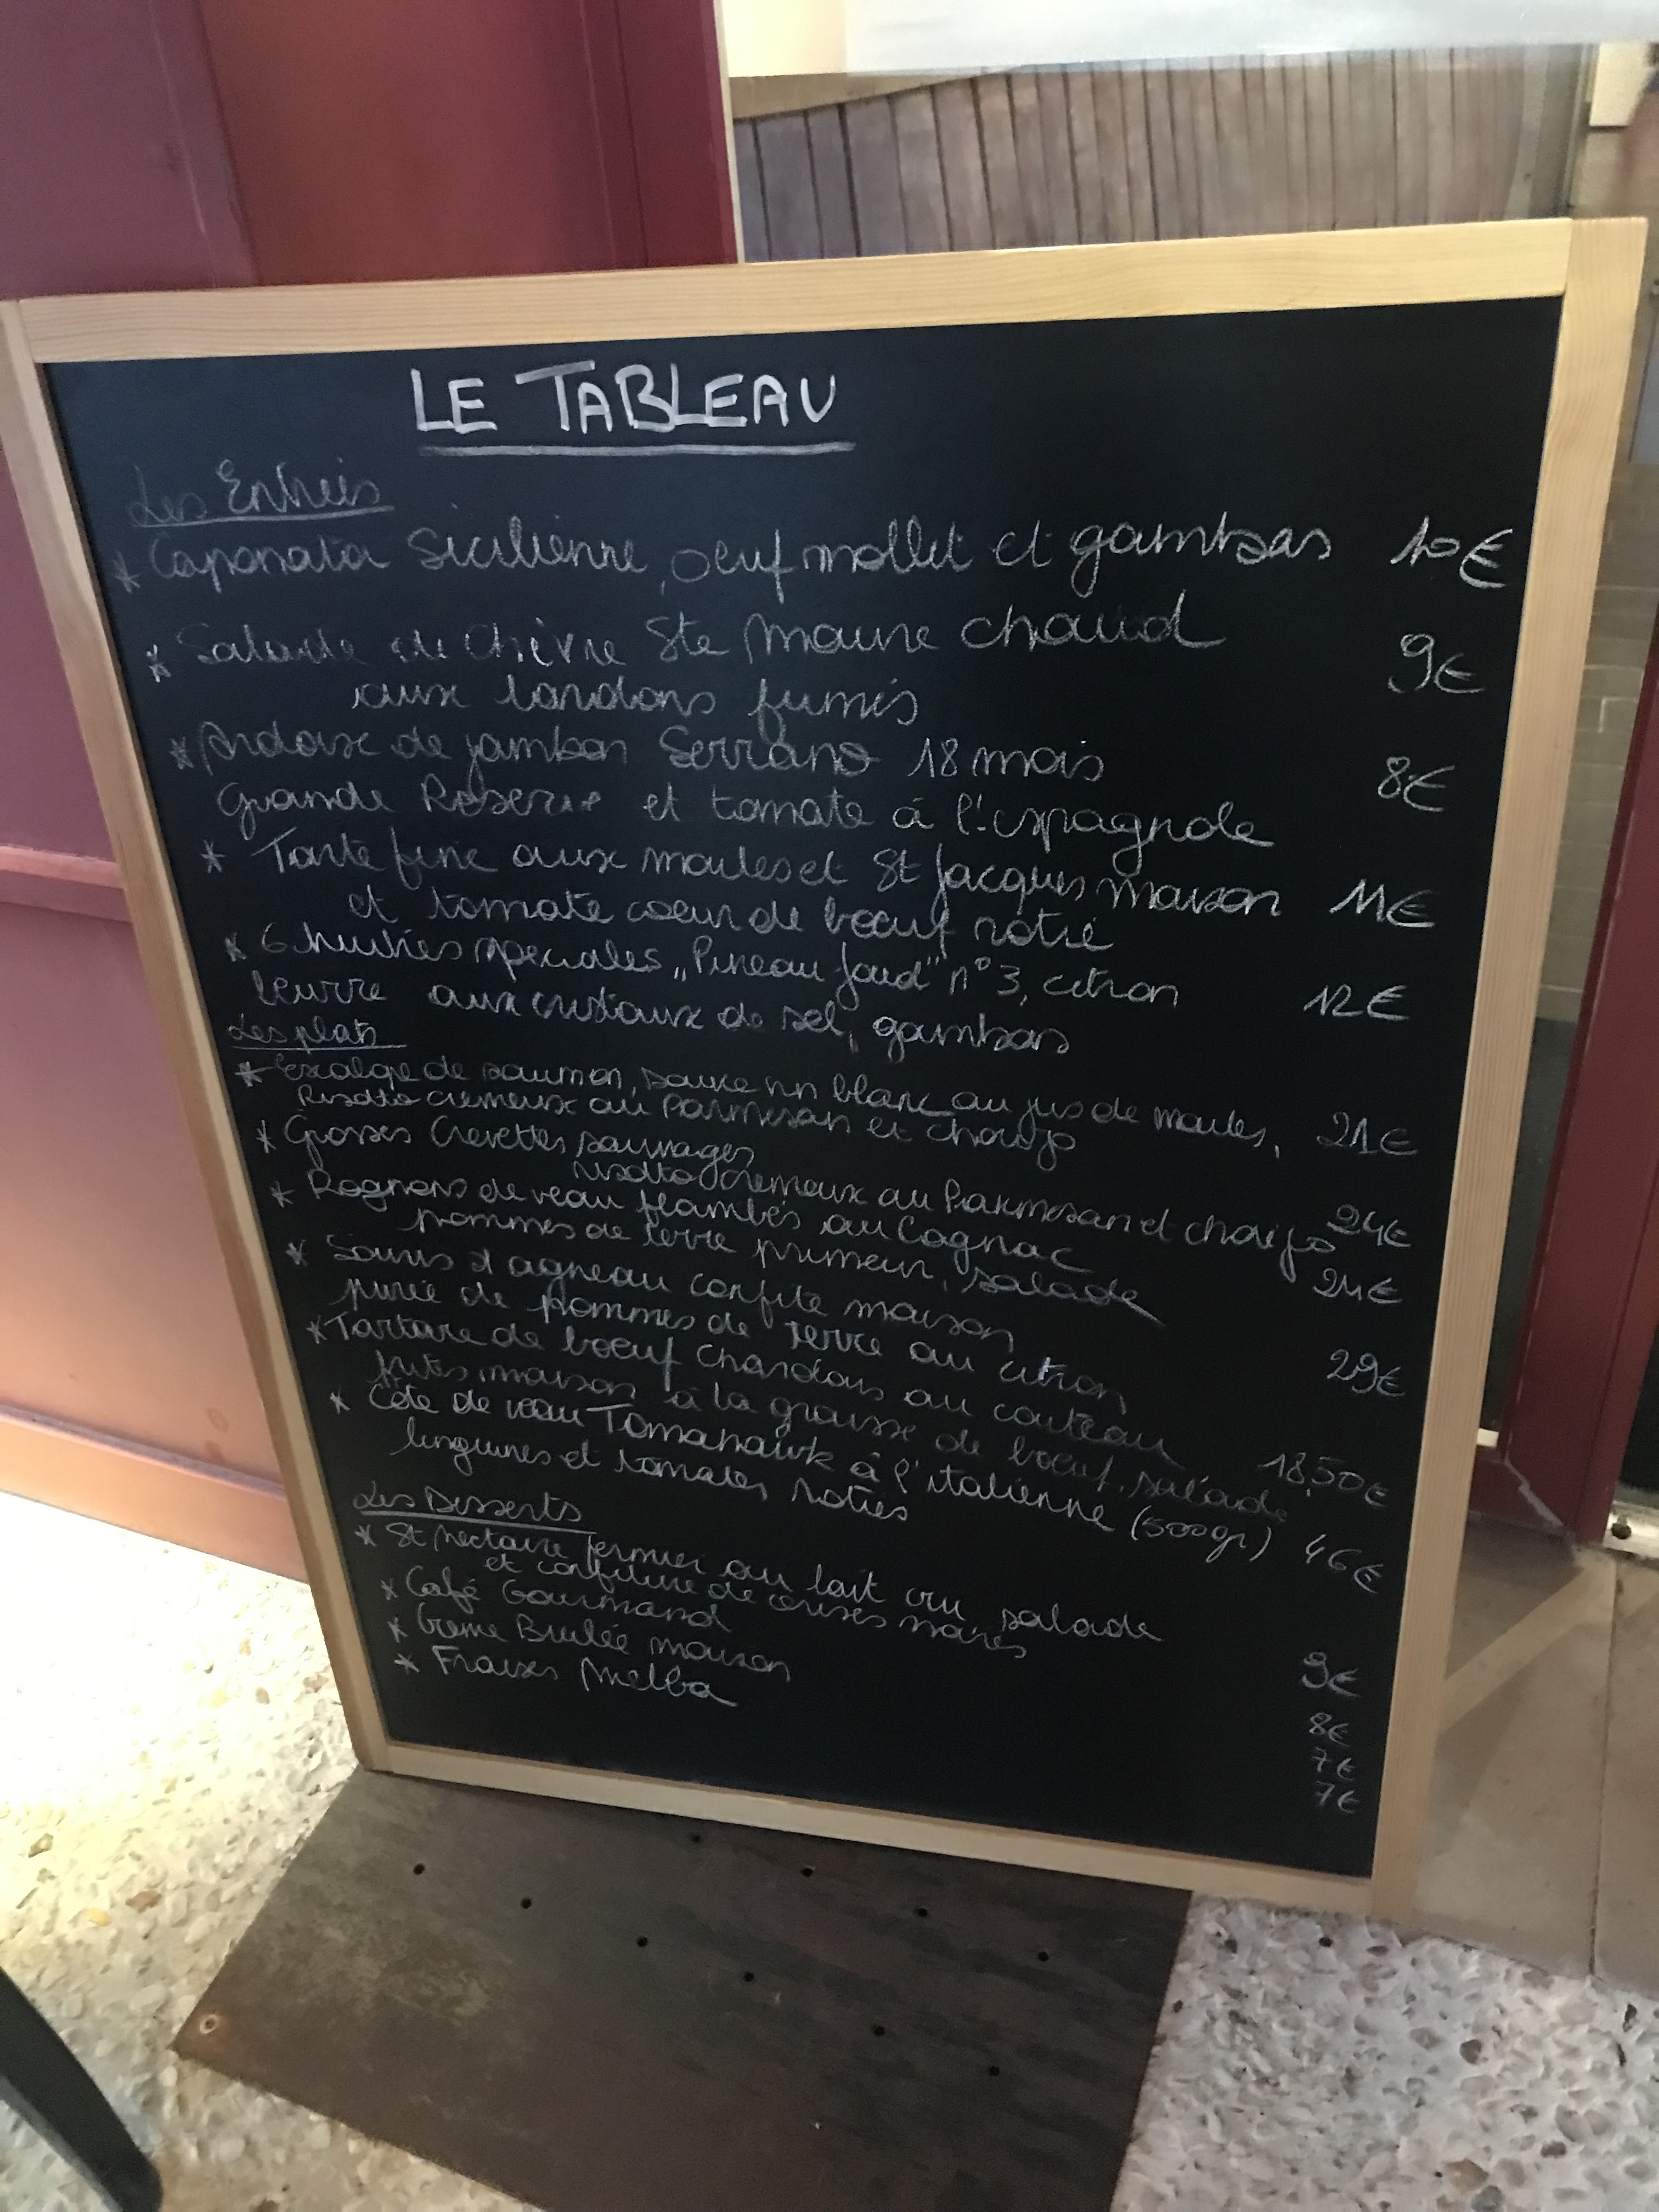 LE TABLEAU
Les Entrées
* Caponata Sicilienne, oeuf mollet et gambas 10€
* Salade de Chèvre Ste Maure chaud 9€
aux lardons fumés
* Ardoise de jambon Serrano 18 mois 8€
Grande Réserve et tomate à l'espagnole
* Tarte fine aux moules et St Jacques maison 11€
et tomate coeur de boeuf rôtie
* 6 huîtres spéciales "Pineau Jaud" n°3, citron 12€
beurre aux cristaux de sel, gambas
Les plats
* Escalope de saumon, sauce vin blanc au jus de moules, 21€
Risotto crémeux au Parmesan et chorizo
* Grosses Crevettes sauvages
risotto crémeux au Parmesan et chorizo 24€
* Rognons de veau flambés au Cognac
pommes de terre primeur, salade 24€
* Souris d'agneau confite maison
purée de pommes de terre au citron 29€
* Tartare de boeuf Charolais au couteau
frites maison à la graisse de boeuf, salade 18,50€
* Côte de veau Tomahawk à l'italienne (500gr) 46€
linguines et tomates rôties
Les Desserts
* St Nectaire fermier au lait cru, salade
et confiture de cerises noires 9€
* Café Gourmand 8€
* Crème Brulée maison 7€
* Fraises Melba 7€